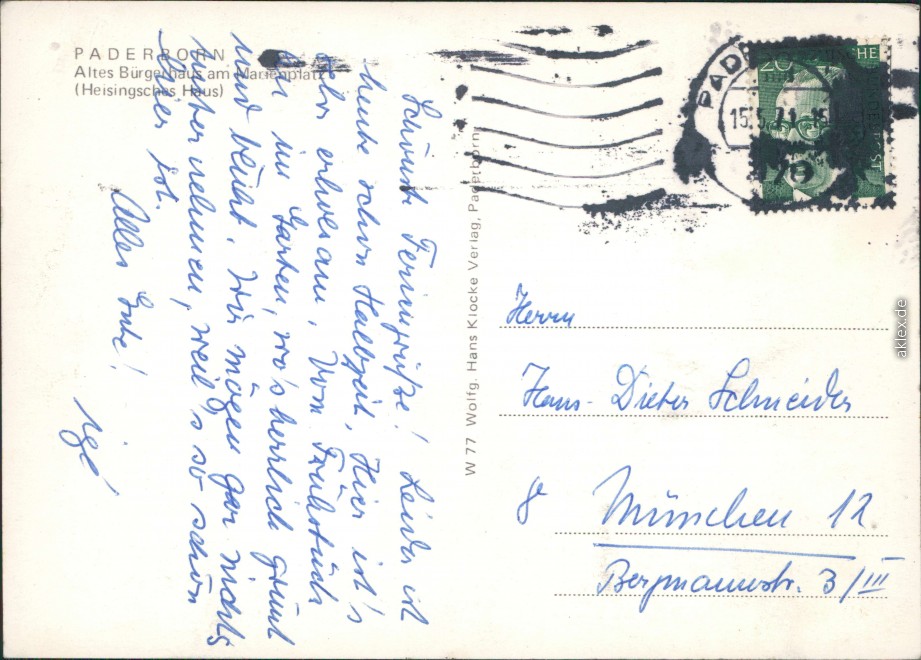 PADERBORN
Altes Bürgerhaus am Marienplatz
(Heisingsches Haus)
Schönste Feriengrüße! Leider ist
heute schon Halbzeit. Hier ist's
sehr erholsam. Vom Frühstück
an im Garten, wo's herrlich grünt
und blüht. Wir mögen gar nichts
unternehmen, weil's so schön
hier ist.
Alles Gute!
W 77 Wolfg. Hans Klocke Verlag, Paderborn
PAD
15.5.71-15
20
Herrn
Hans-Dieter Schneider
8 München 12
Bergmannstr. 3/III
aklex.de